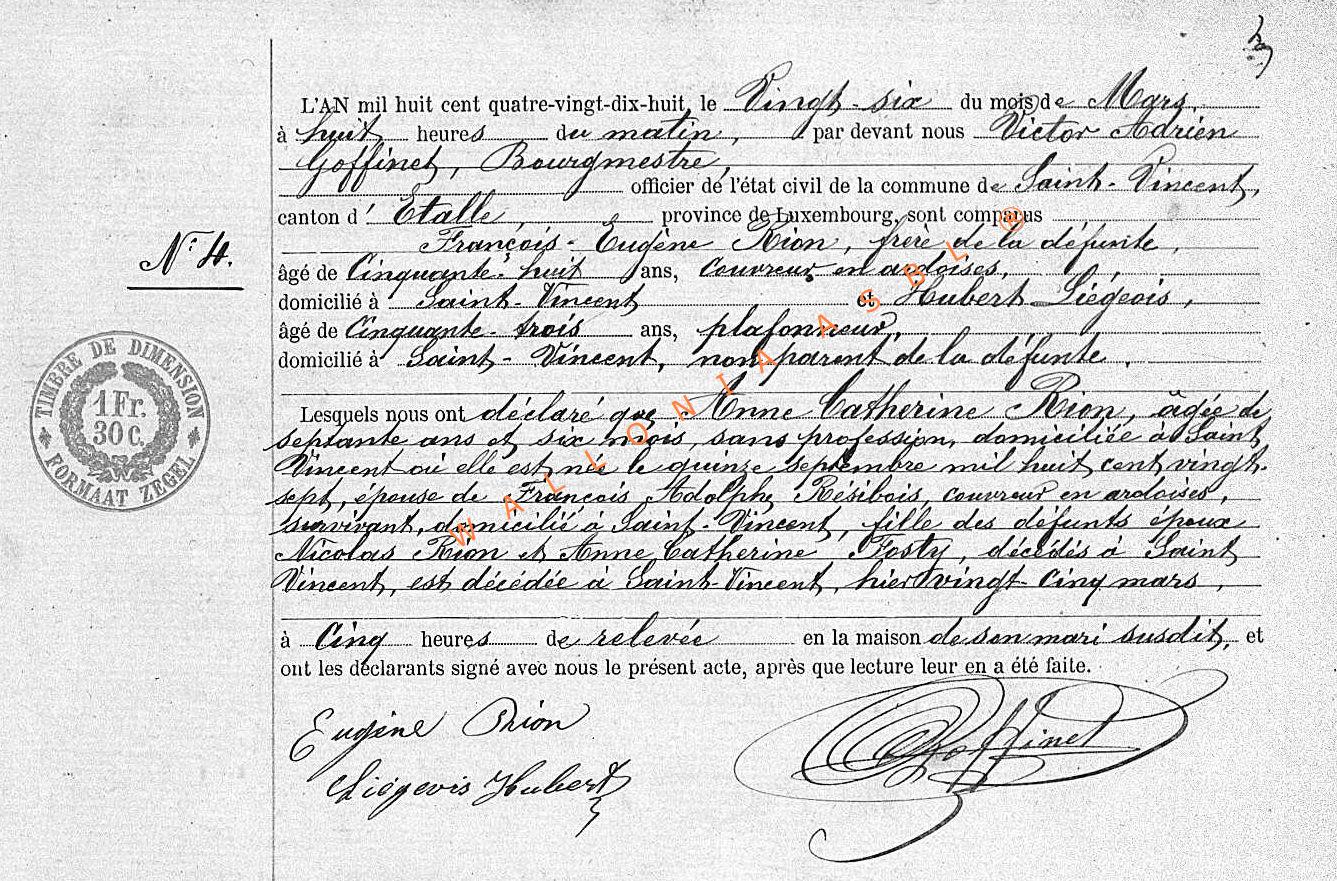 3
L'AN mil huit cent quatre-vingt-dix-huit, le Vingt-six du mois de Mars,
à huit heures du matin, par devant nous Victor Adrien
Goffinet, Bourgmestre,
officier de l'état civil de la commune de Saint-Vincent,
canton d' Etalle, province de Luxembourg, sont comparus
François-Eugène Rion, frère de la défunte,
N° 4.
âgé de Cinquante-huit ans, couvreur en ardoises,
domicilié à Saint-Vincent et Hubert Liégeois,
âgé de Cinquante-trois ans, plafonneur,
domicilié à Saint-Vincent, non parent de la défunte.
TIMBRE DE DIMENSION
1 Fr.
30 C.
FORMAAT ZEGEL
Lesquels nous ont déclaré que Anne Catherine Rion, âgée de
septante ans et six mois, sans profession, domiciliée à Saint
Vincent où elle est née le quinze septembre mil huit cent vingt-
sept, épouse de François Adolphe Résibois, couvreur en ardoises,
survivant, domicilié à Saint-Vincent, fille des défunts époux
Nicolas Rion et Anne Catherine Fosty, décédés à Saint
Vincent, est décédée à Saint-Vincent, hier vingt-cinq mars,
à Cinq heures de relevée en la maison de son mari susdit, et
ont les déclarants signé avec nous le présent acte, après que lecture leur en a été faite.
Eugène Rion
Liégeois Hubert
Goffinet
WALLONIA ASBL ®